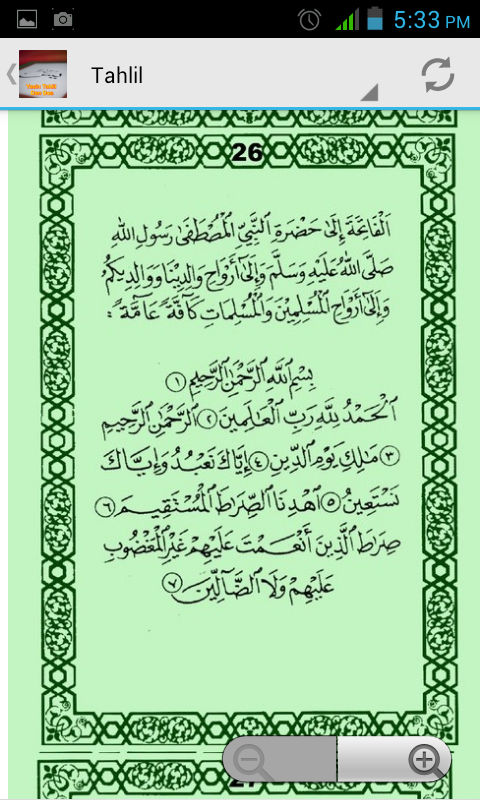 5:33 PM
Tahlil
26
اَلْفَاتِحَةَ إِلَىٰ حَضْرَةِ النَّبِيِّ الْمُصْطَفَىٰ رَسُولِ اللهِ
صَلَّى اللهُ عَلَيْهِ وَسَلَّمَ وَإِلَىٰ أَرْوَاحِ وَالِدِيْنَا وَوَالِدِيكُمْ
وَإِلَىٰ أَرْوَاحِ الْمُسْلِمِيْنَ وَالْمُسْلِمَاتِ كَآفَّةً عَآمَّةً :
بِسْمِ اللَّهِ الرَّحْمَٰنِ الرَّحِيمِ ١
الْحَمْدُ لِلَّهِ رَبِّ الْعَالَمِينَ ٢ الرَّحْمَٰنِ الرَّحِيمِ
٣ مَٰلِكِ يَوْمِ الدِّينِ ٤ إِيَّاكَ نَعْبُدُ وَإِيَّاكَ
نَسْتَعِينُ ٥ اهْدِنَا الصِّرَاطَ الْمُسْتَقِيمَ ٦
صِرَاطَ الَّذِينَ أَنْعَمْتَ عَلَيْهِمْ غَيْرِ الْمَغْضُوبِ
عَلَيْهِمْ وَلَا الضَّآلِّينَ ٧